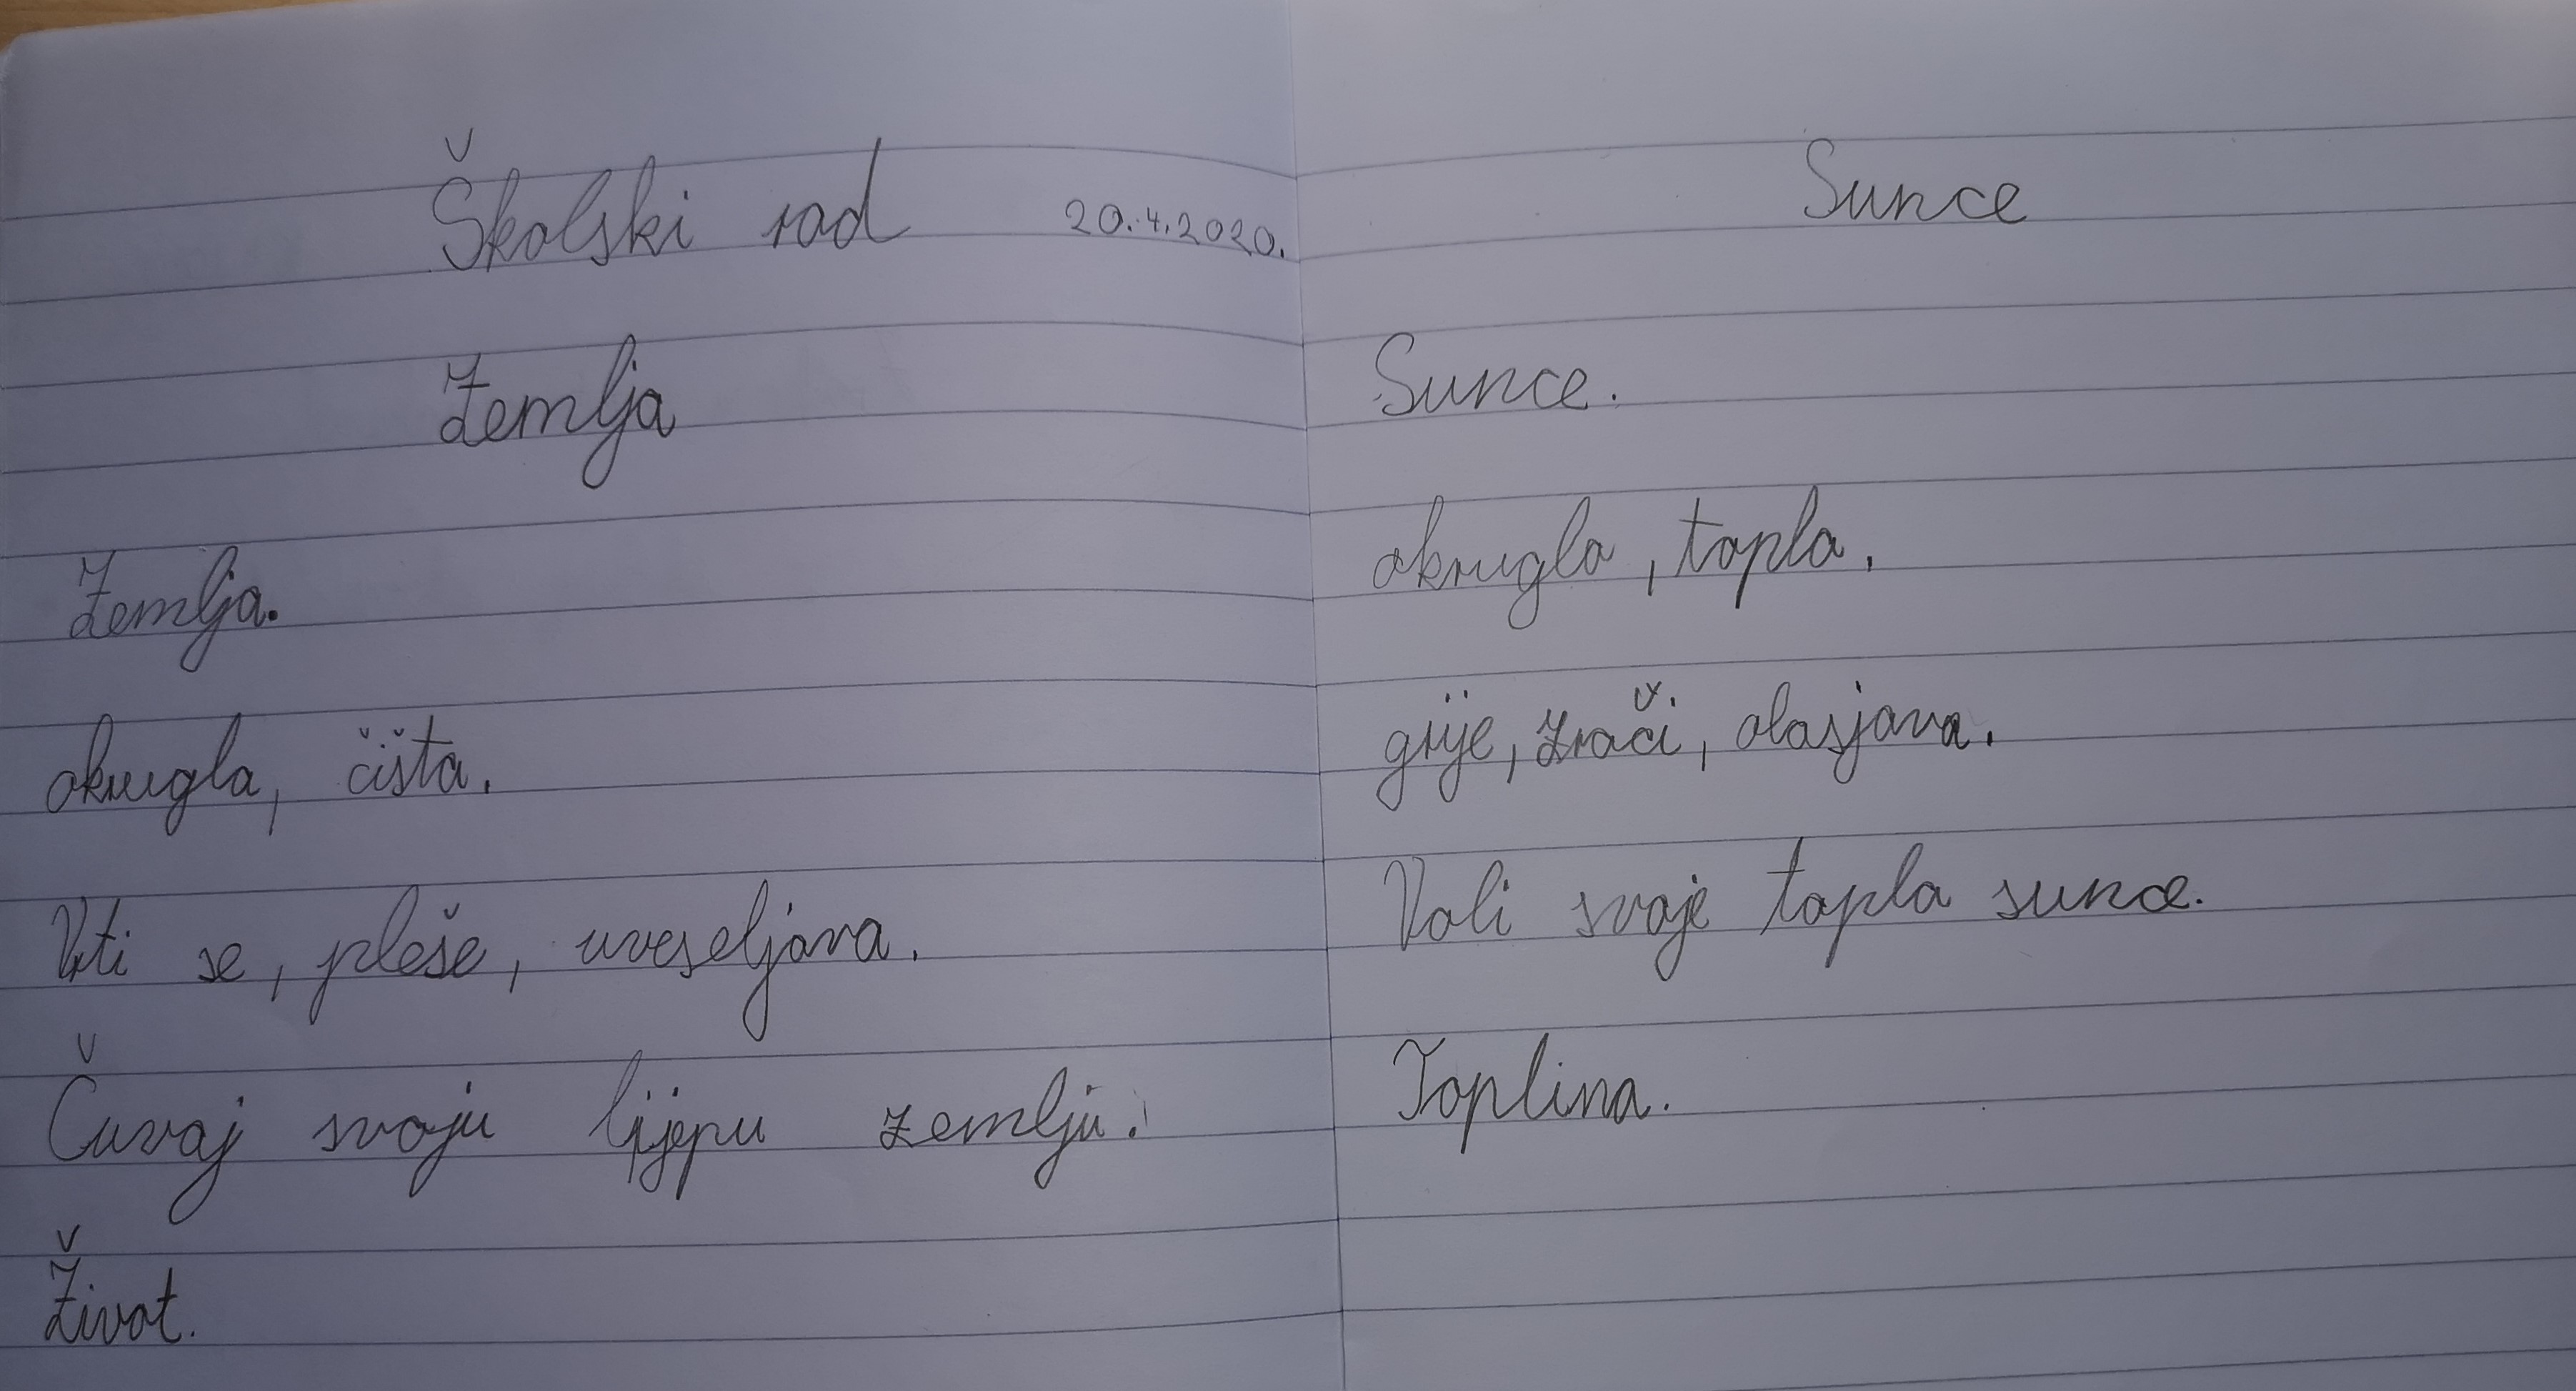 Školski rad 20.4.2020.
Zemlja
Zemlja.
okrugla, čišta.
Vrti se, pleše, uveseljava.
Čuvaj svoju lijepu zemlju.
Život.
Sunce
Sunce.
okruglo, toplo.
grije, zrači, obasjava.
Voli svoje toplo sunce.
Toplina.